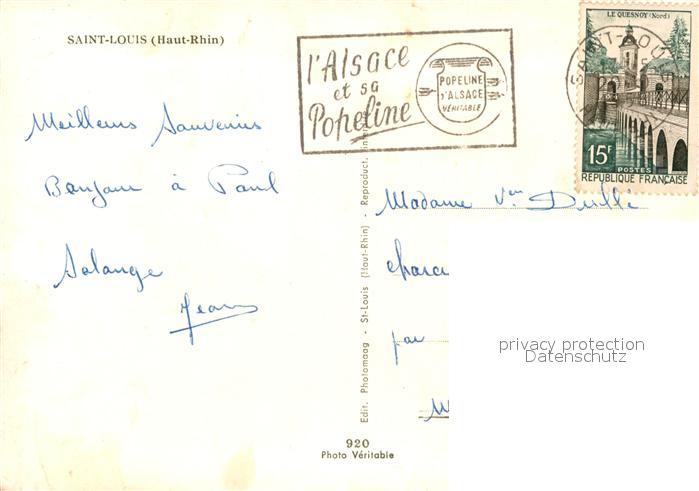 SAINT-LOUIS (Haut-Rhin)
l'Alsace
et sa
Popeline
POPELINE
D'ALSACE
VÉRITABLE
LE QUESNOY (Nord)
SAINT-LOUIS
15F
POSTES
RÉPUBLIQUE FRANÇAISE
Meilleurs Souvenirs
Bonjour à Paul
Solange
Jean
Madame Vve
charcu
par
privacy protection
Datenschutz
Edit. Photomaag - St-Louis (Haut-Rhin) - Reproduct. inter
920
Photo Véritable